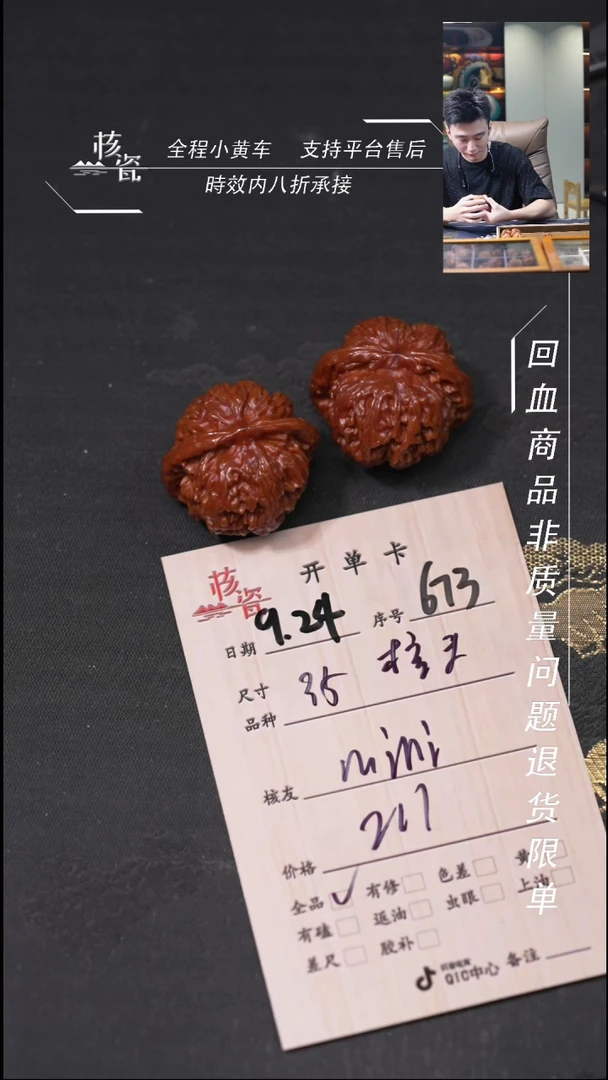 核瓷
全程小黄车 支持平台售后
時效内八折承接
回血商品非质量问题退货限单
核瓷
开单卡
日期 9.24 序号 673
尺寸 35
品种
核友 mini
价格 217
全品 ✓ 有修 色差
有磕 返油 虫眼 上油
差尺 胶补
QIC中心 备注